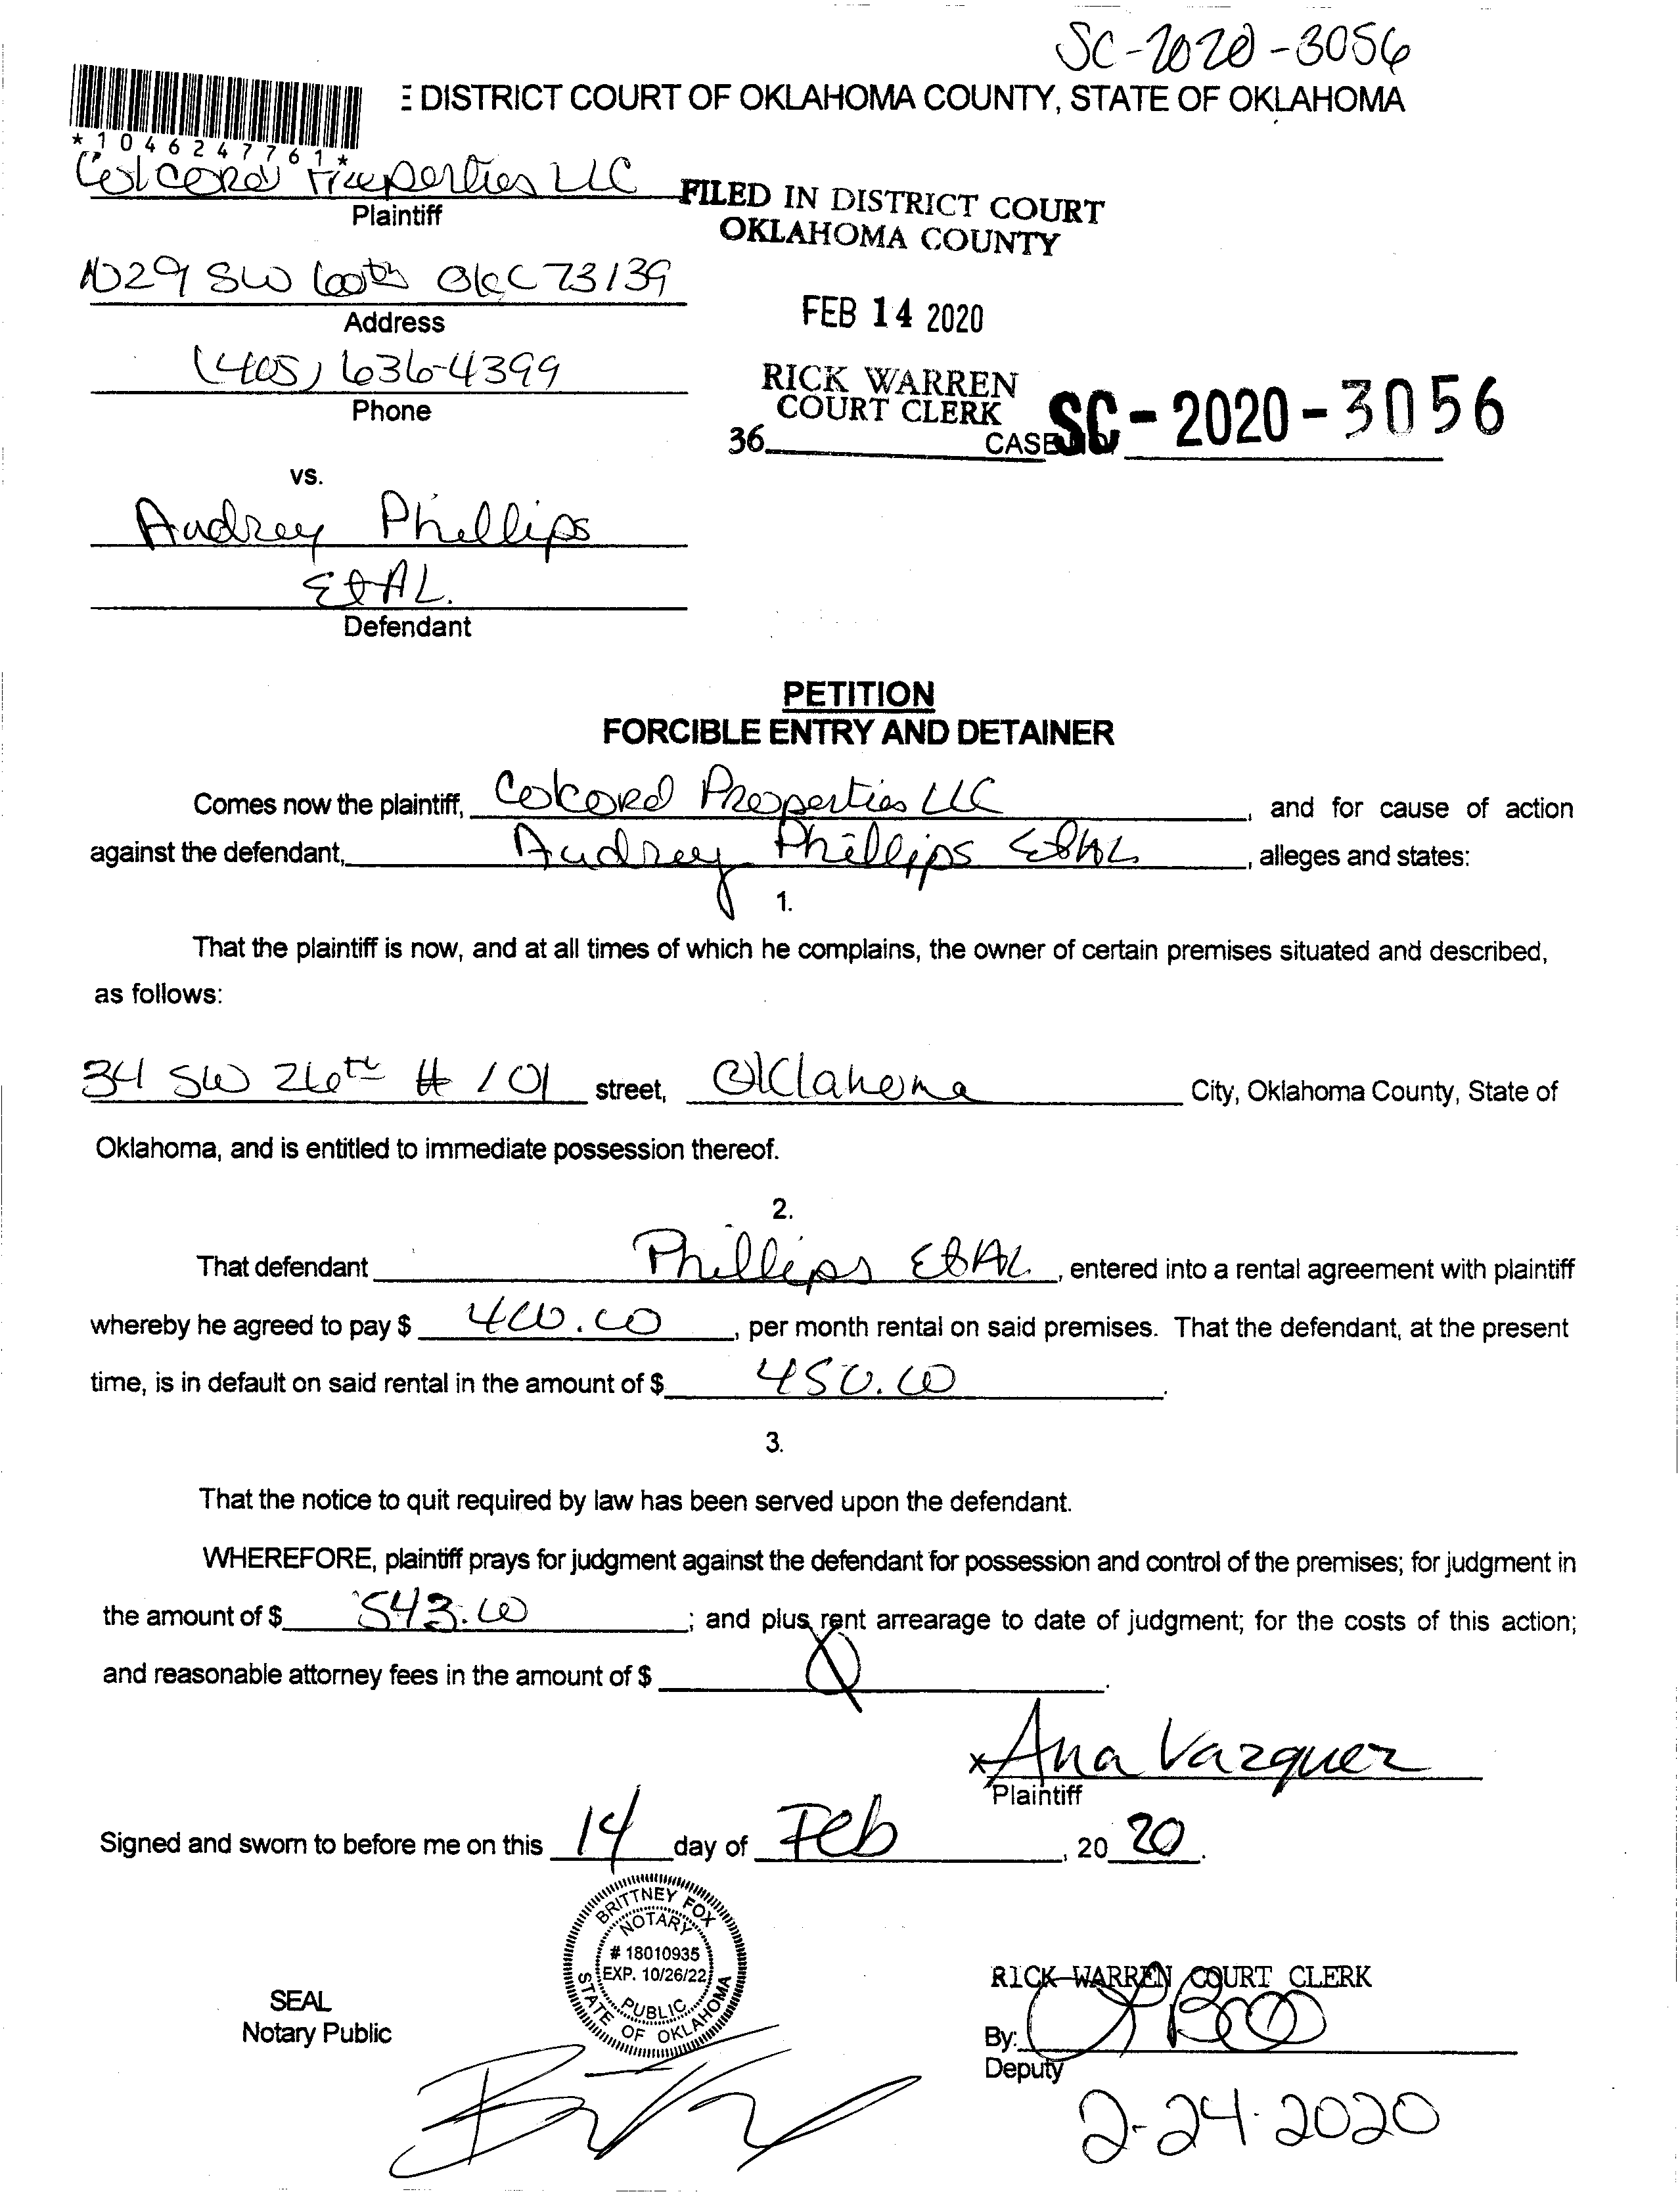 SC-2020-3056
E DISTRICT COURT OF OKLAHOMA COUNTY, STATE OF OKLAHOMA
*1046247761*
Colcord Properties LLC
Plaintiff
FILED IN DISTRICT COURT
OKLAHOMA COUNTY
SW OKC 73139
Address
FEB 14 2020
(405) 636-4399
Phone
RICK WARREN
COURT CLERK
36 CASE SC-2020-3056
vs.
Audrey Phillips
Et AL.
Defendant
PETITION
FORCIBLE ENTRY AND DETAINER
Comes now the plaintiff, Colcord Properties LLC, and for cause of action
against the defendant, Audrey Phillips Et AL, alleges and states:
1.
That the plaintiff is now, and at all times of which he complains, the owner of certain premises situated and described,
as follows:
34 SW 26th # 101 street, Oklahoma City, Oklahoma County, State of
Oklahoma, and is entitled to immediate possession thereof.
2.
That defendant Phillips Et AL, entered into a rental agreement with plaintiff
whereby he agreed to pay $ 400.00, per month rental on said premises. That the defendant, at the present
time, is in default on said rental in the amount of $ 450.00.
3.
That the notice to quit required by law has been served upon the defendant.
WHEREFORE, plaintiff prays for judgment against the defendant for possession and control of the premises; for judgment in
the amount of $ 543.00; and plus rent arrearage to date of judgment; for the costs of this action;
and reasonable attorney fees in the amount of $ 0.
x Ana Vazquez
Plaintiff
Signed and sworn to before me on this 14 day of Feb, 2020.
BRITTNEY FOX
NOTARY
# 18010935
EXP. 10/26/22
PUBLIC
STATE OF OKLAHOMA
SEAL
Notary Public
RICK WARREN COURT CLERK
By:
Deputy
2-24-2020